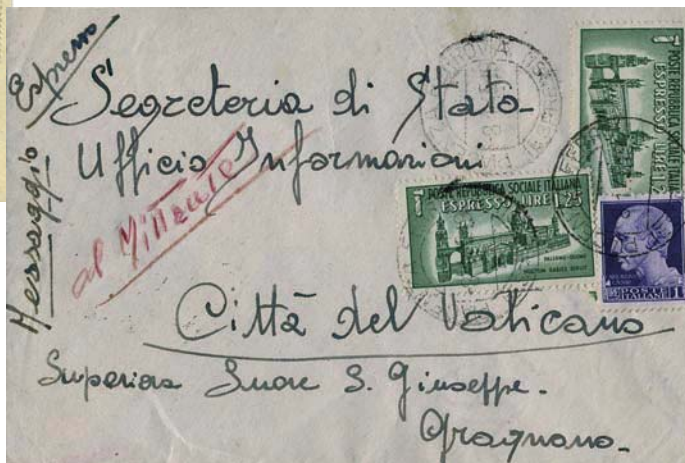 Espresso
Messaggio
Segreteria di Stato
Ufficio Informazioni
al Mittente
Città del Vaticano
Superiora Suore S. Giuseppe.
Gragnano
POSTE REPUBBLICA SOCIALE ITALIANA
ESPRESSO LIRE 1,25
PALERMO - DUOMO
HOSTIUM RABIES DIRUIT
POSTE REPUBBLICA SOCIALE ITALIANA
ESPRESSO LIRE
POSTE
ITALIANE
1